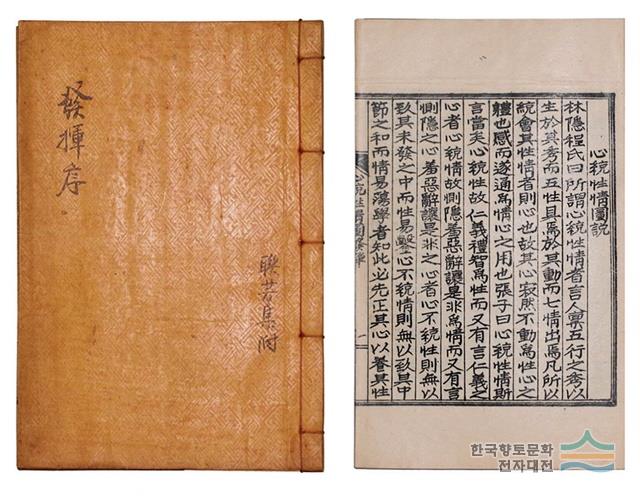 發揮序
聯芳集附
心統性情圖說
林隱程氏曰所謂心統性情者言人稟五行之秀以
生於其秀而五性具焉於其動而七情出焉凡所以
統會其性情者則心也故其心寂然不動爲性心之
體也感而遂通爲情心之用也張子曰心統性情斯
言當矣心統性故仁義禮智爲性而又有言仁義之
心者心統情故惻隱羞惡辭讓是非爲情而又有言
惻隱之心羞惡辭讓是非之心者心不統性則無以
致其未發之中而性易鑿心不統情則無以致其中
節之和而情易蕩學者知此必先正其心以養其性
心統性情圖
한국향토문화
전자대전